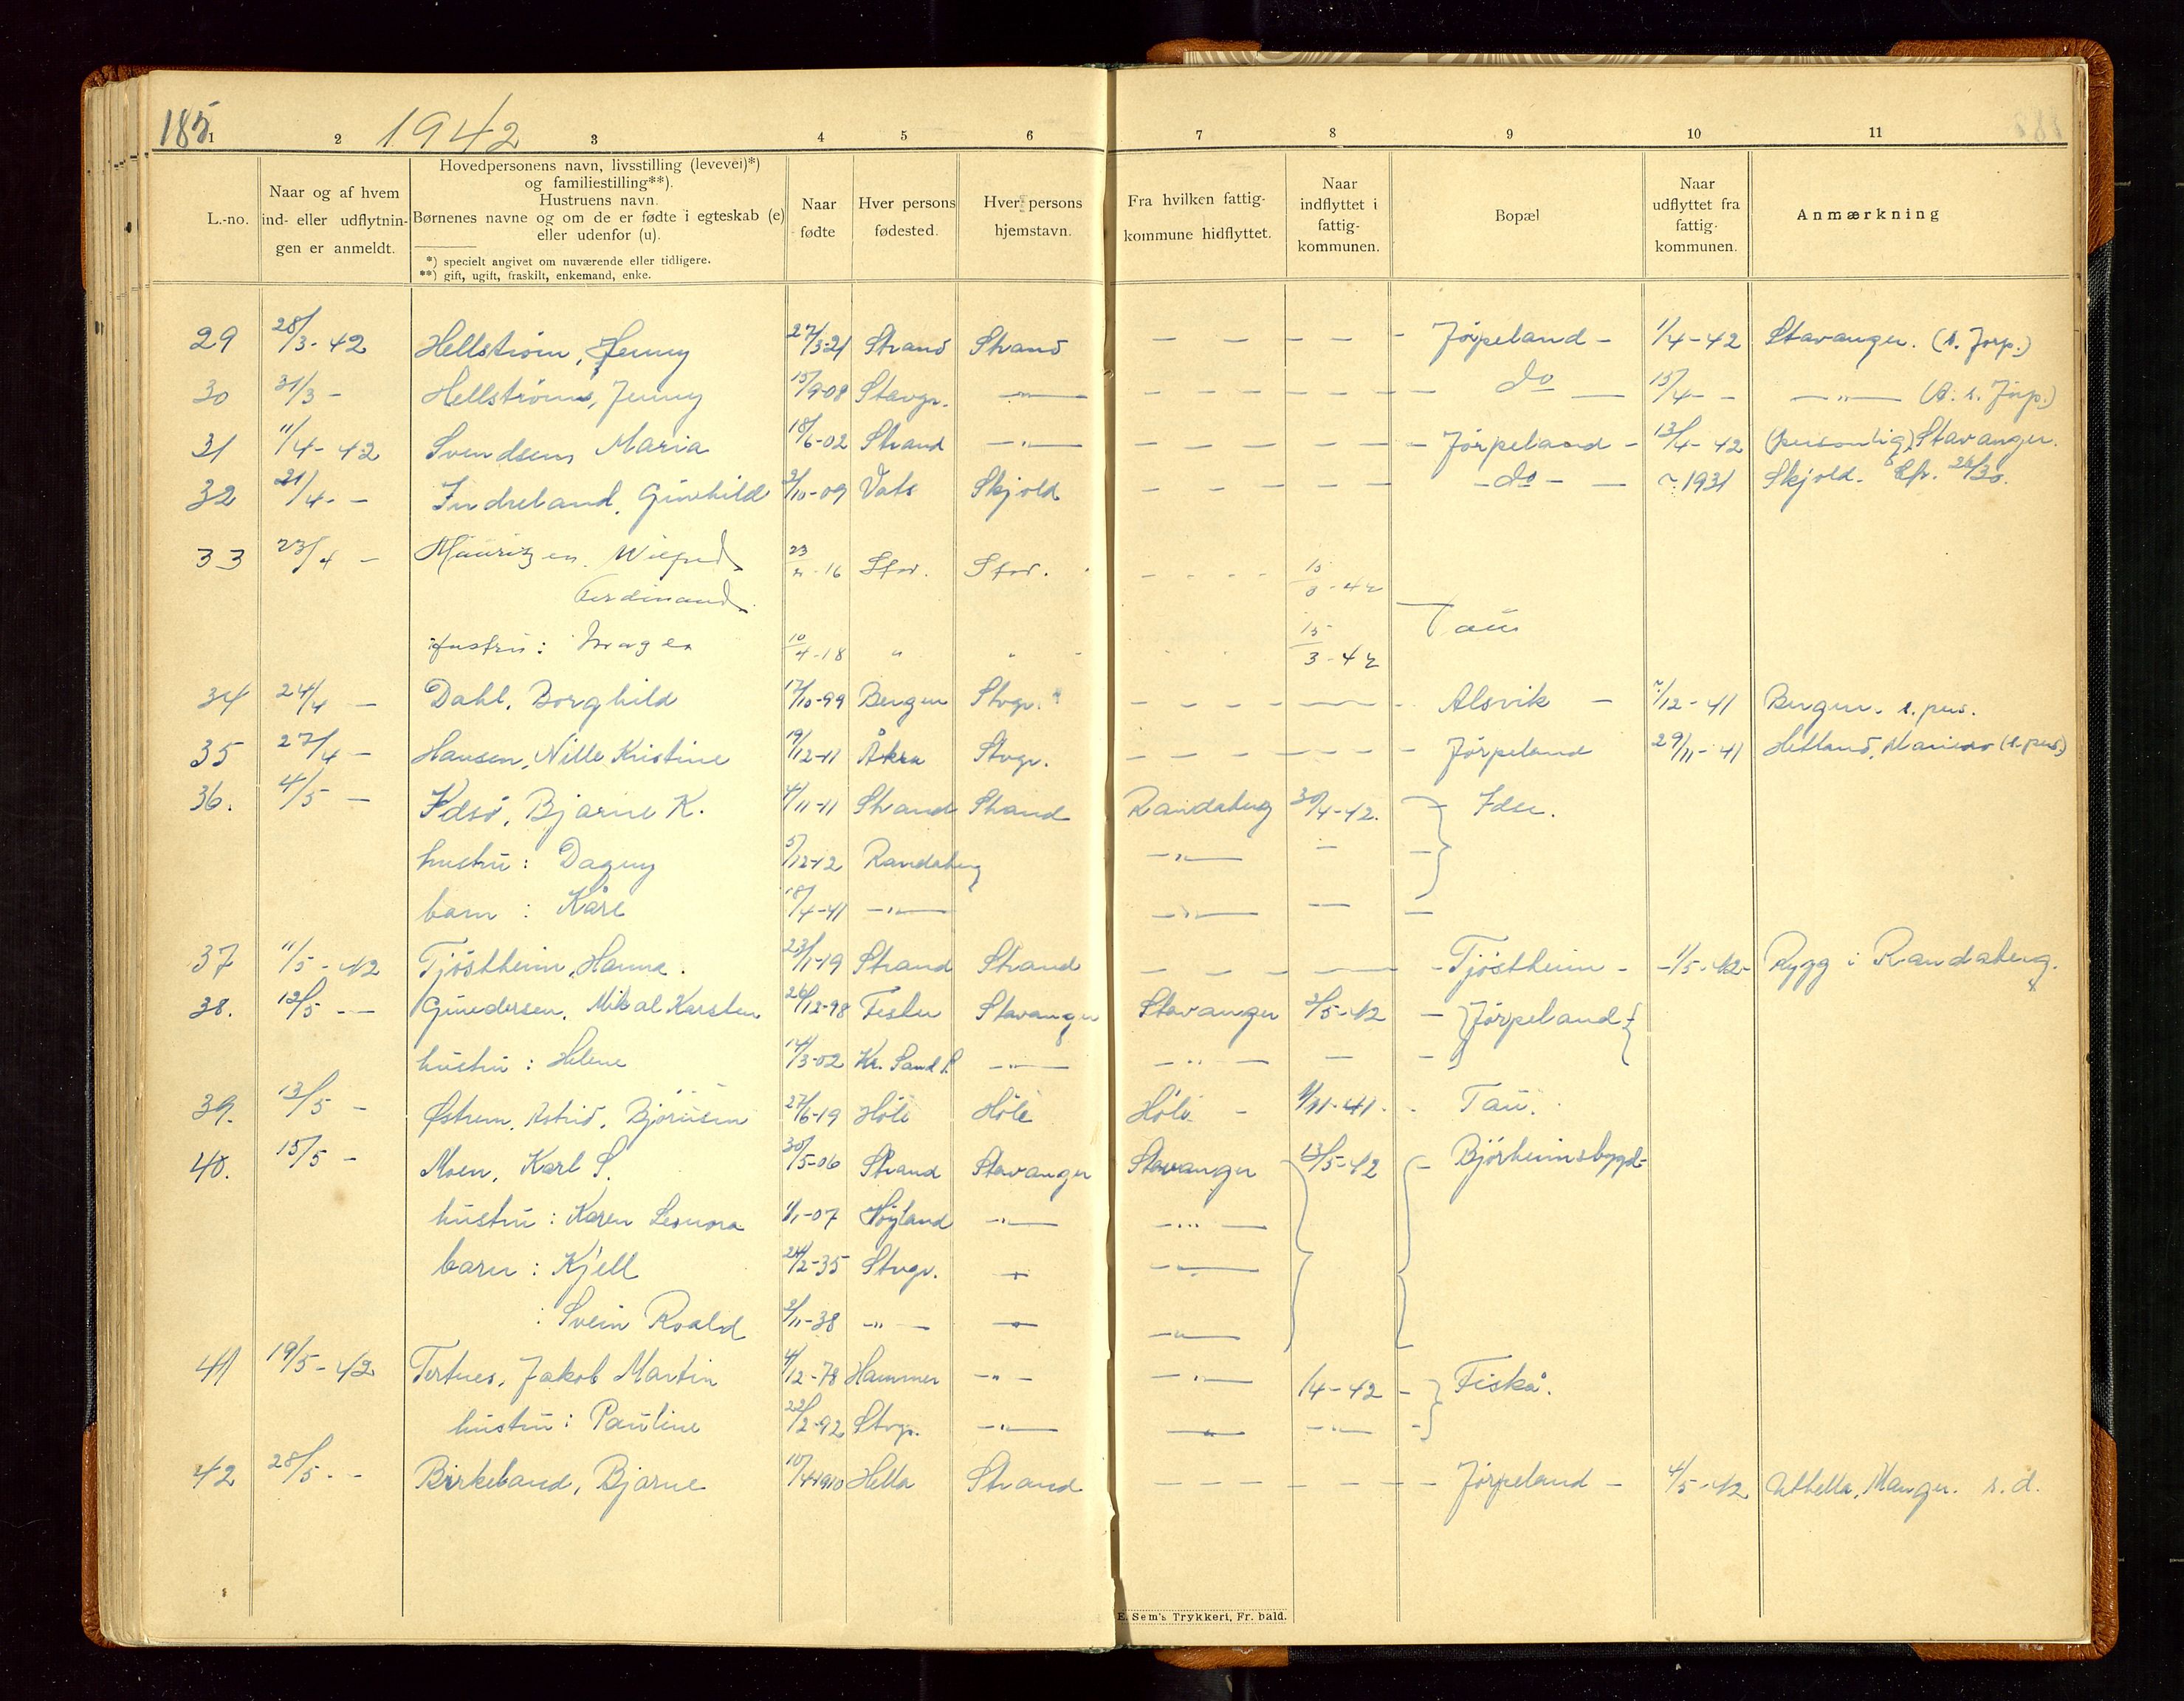 185 1942
1 2 3 4 5 6 7 8 9 10 11
L.-no.
Naar og af hvem
ind- eller udflytnin-
gen er anmeldt.
Hovedpersonens navn, livsstilling (levevei)*)
og familiestilling**).
Hustruens navn.
Børnenes navne og om de er fødte i egteskab (e)
eller udenfor (u).
*) specielt angivet om nuværende eller tidligere.
**) gift, ugift, fraskilt, enkemand, enke.
Naar
fødte
Hver persons
fødested.
Hver persons
hjemstavn.
Fra hvilken fattig-
kommune hidflyttet.
Naar
indflyttet i
fattig-
kommunen.
Bopæl
Naar
udflyttet fra
fattig-
kommunen.
Anmærkning
29 28/3-42 Hellstrøm, Jenny 27/3-21 Strand Strand — — — — — — — Jørpeland — 1/4-42 Stavanger. (s. Jørp.)
30 31/3 - Hellstrøm, Jenny 15/9-08 Stavgr. —"— — — — — — — — do — 15/4 - - —"— (A. s. Jørp.)
31 11/4-42 Svendsen, Maria 18/6-02 Strand —"— — — — — — — — Jørpeland — 13/4-42 (personlig) Stavanger.
32 21/4 - - Indreland, Gunhild 2/10-09 Vats Skjold — — — — — — - do - — ~ 1931 Skjold.
33 23/4 - Mauritzen. Wilfred 23 -16 Stav. Stav. - - - - 15/3-42
Ferdinand
Hustru: 10/4-18 " " 15/3-42 Tau
34 24/4 - Dahl, Borghild 17/10-99 Bergen Stvgr. — — — — Alsvik — /12-41 Bergen. s. pers.
35 27/4 - Hansen, Nille Kristine 19/12-11 Åkra Stvgr. — — — — — — — Jørpeland 29/11-41 Hetland, (s. pers.)
36. 4/5 — Idsø, Bjarne K. 4/11-11 Strand Strand Randaberg 30/4-42. Idse.
hustru: Dagny 5/12-12 Randaberg —"— — —
barn : Kåre 18/4-41 —"— —"— — —
37 11/5-42 Tjøstheim, Hanna. 23/1-19 Strand Strand — — — — - Tjøstheim - - 1/5-42 - Rygg i Randaberg.
38. 12/5 - - Gundersen, Mikal Karsten 26/12-98 Fester Stavanger Stavanger 2/5-42 — Jørpeland
hustru: Helene 14/3-02 Kr. Sand S. —"— —"— — —
39. 13/5 - Østrem, Astrid, Bjørnsen 27/6-19 Høle Høle Høle - 1/11-41. Tau.
40. 15/5 - Moen, Karl S. 30/5-06 Strand Stavanger Stavanger 13/5-42 Bjørheimsbygd-
hustru: Karen Leonora 1/1-07 Høyland —"— —"—
barn: Kjell 24/2-35 Stvgr. —"— —"—
: Svein Roald 2/11-38 —"— —"— —"—
41 19/5-42 Tertnes, Jakob Martin 4/12-78 Hammer —"— —"— 1/4-42 - Fiskå.
hustru: Pauline 22/2-92 Stvgr. —"— —"— —"— -
42 28/5 - - Birkeland, Bjarne 10/4 1910 Hetla Strand — — — — — — — Jørpeland — 4/5-42 Manger. s. d.
E. Sem's Trykkeri, Fr. hald.